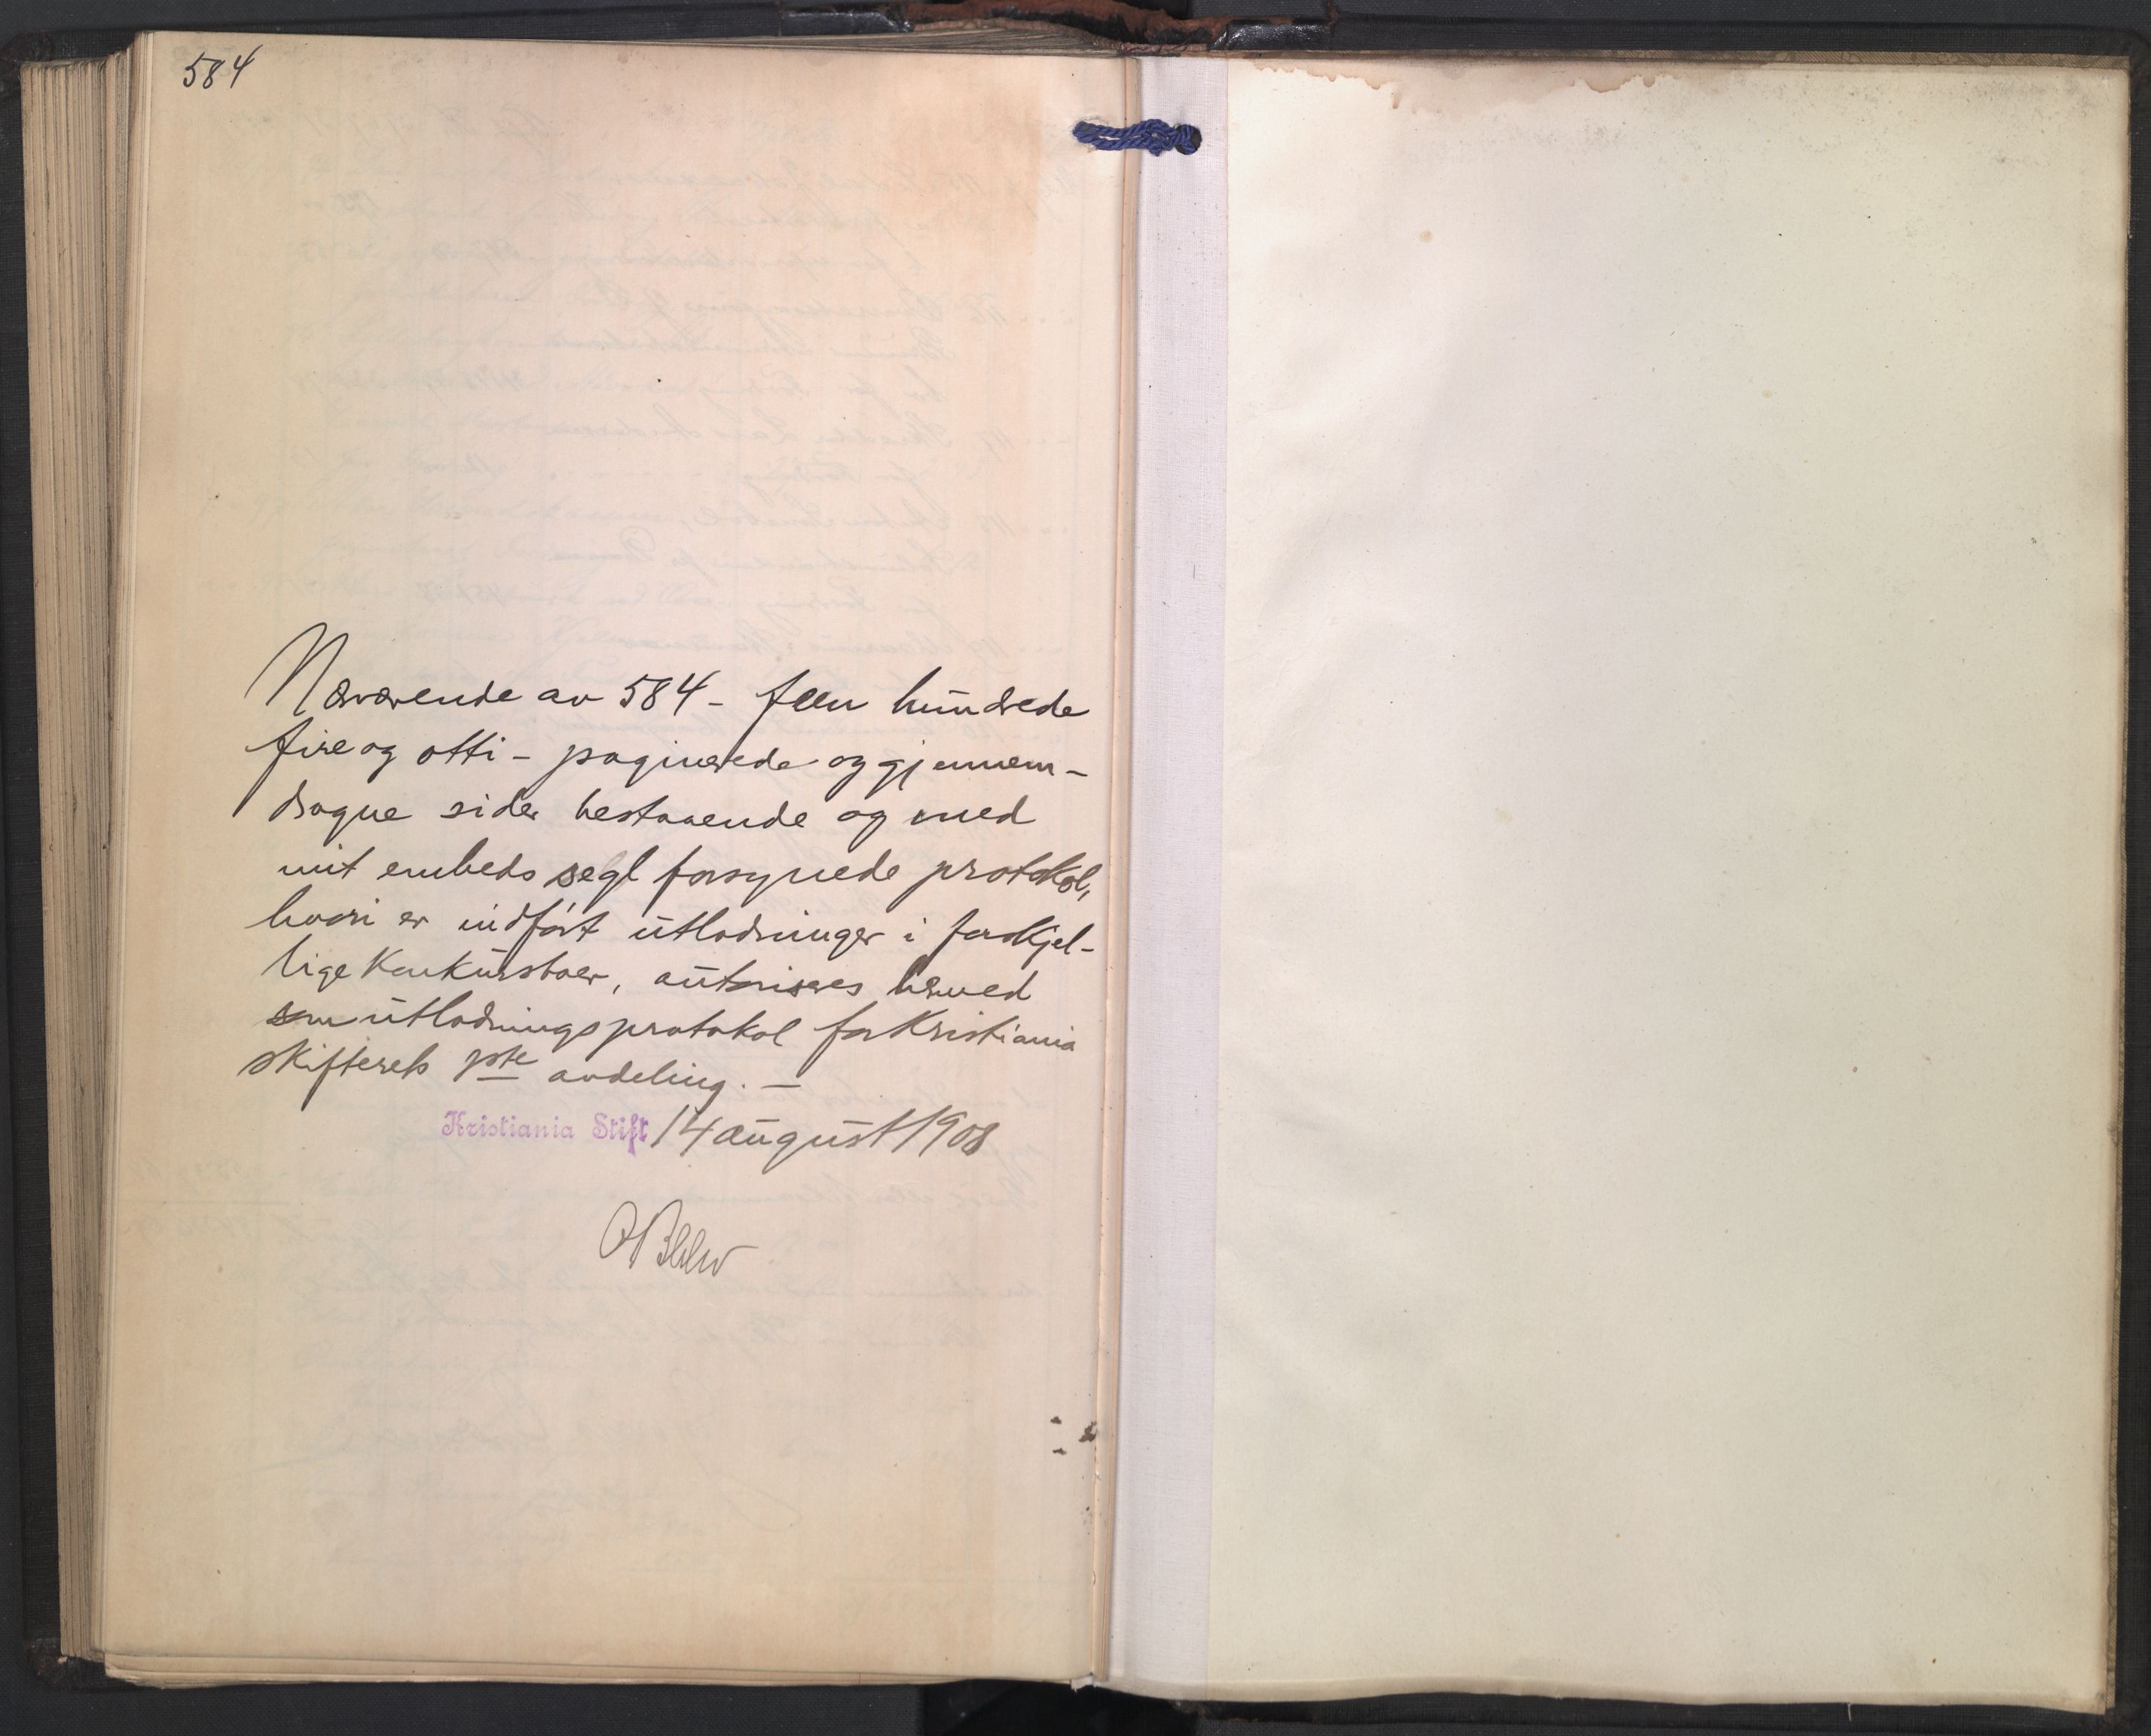 584
Nærværende av 584 - fem hundrede
fire og otti - paginerede og gjennem-
dragne sider bestaaende og med
mit embedssegl forsynede protokol,
hvori er indført utlodninger i forskjel-
lige konkursboer, autoriseres herved
som utlodningsprotokol for Kristiania
skifterets avdeling. —
Kristiania Stift 14 august 1908